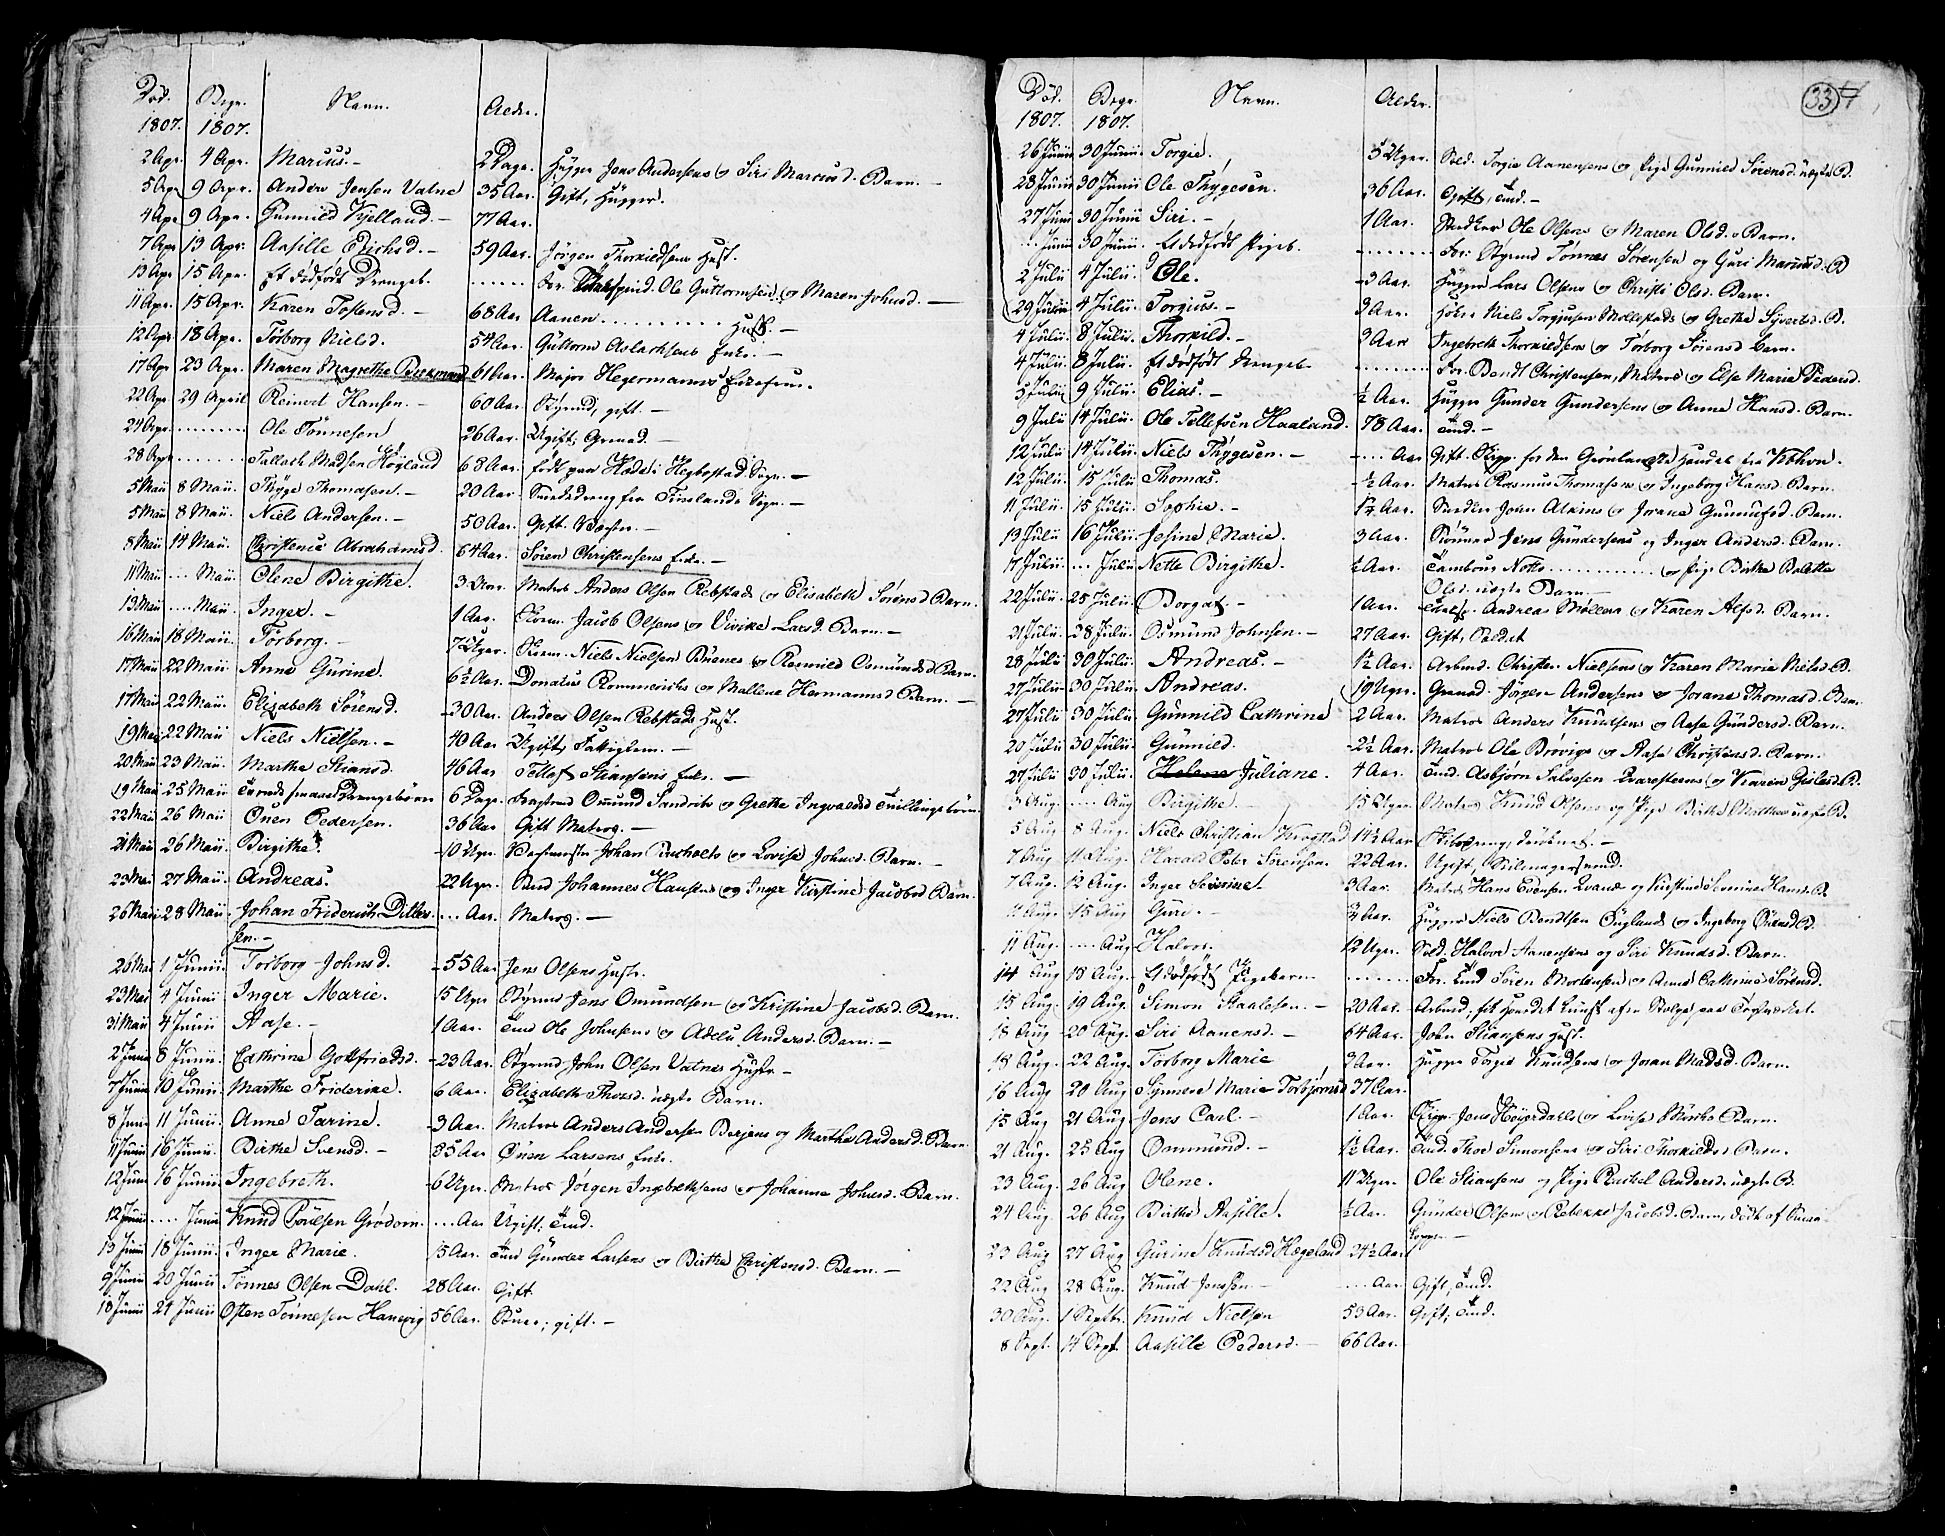 Død. Begr. Navn. Alder.
1807. 1807.
2 Apr. 4 Apr. Marcus. - 2 Dage. Hugger Jens Andersens og Siri Marcusd. Barn. -
5 Apr. 9 Apr. Anders Jensen Vatne 35 Aar. Gift, Hugger.
4 Apr. 9 Apr. Gunnild Kjelland. - 77 Aar.
7 Apr. 13 Apr. Aasille Erichsd. - 59 Aar. Jörgen Thorkildsens Hust.
13 Apr. 15 Apr. Et dødfødt Drengeb. ...... For. Ole Guttormsen og Maren Johnsd. -
11 Apr. 15 Apr. Karen Tostensd. - 68 Aar Aanen .......... Hust. -
12 Apr. 18 Apr. Torborg Nielsd. 54 Aar. Guttorm Aslachsens Enke. -
17 Apr. 23 Apr. Maren Magrethe Beekmand 61 Aar. Major Hegermanns Enkefrue.
22 Apr. 29 April Reinert Hansen. - 60 Aar. Styrmd, gift. -
24 Apr. ......... Ole Tönnesen 26 Aar. Ugift, Grenad. -
28 Apr. ....... Tallach Madsen Högland 68 Aar. født paa i Hegbostad Sogn. -
5 Maii 8 Maii. Thyge Thomasen. - 20 Aar. fra Finslands Sogn. -
5 Maii 8 Maii. Niels Andersen. - 50 Aar. Gift. -
8 Maii 14 Maii. Christence Abrahamsd. 64 Aar. Sören Christensens Enke. -
11 Maii ... Maii. Olene Birgithe. 3 Matros Anders Olsen Rebstads og Elisabeth Sörensd. Barn.
13 Maii .... Maii. Inger. - 1 Aar. Jacob Olsens og Vivike Larsd. Barn. -
16 Maii 18 Maii. Torborg. - 7 Uger. Niels Nielsen Buenes og Ronnild Osmundsd Barn.
17 Maii 22 Maii. Anne Gurine. 6½ Aar. Donatus Rommerichs og Mallene Hermannsd Barn. -
17 Maii 22 Maii. Elizabeth Sörensd. 30 Aar. Anders Olsen Rebstads Hust.
19 Maii 22 Maii Niels Nielsen. - 40 Aar Ugift, Fattiglem. -
20 Maii 23 Maii. Marthe Stiansd. 46 Aar Tellef Stiansens Enke. -
19 Maii 25 Maii Drengebörn 6 Dage. Omund Sandvik og Grethe Ingvaldsd Tvillingebörn.
22 Maii 26 Maii Ouen Pedersen. 36 Aar Gift Matros. -
21 Maii 26 Maii. Birgithe. 10 Uger. Johan og Lovise Johnsd. Barn. -
23 Maii 27 Maii. Andreas. 22 Uger. Johannes Hansens og Inger Kirstine Jacobsd Barn.
26 Maii 28 Maii. Johan Friderich Ditlev- ... Aar. Matros. -
sen. -
26 Maii 1 Junii. Torborg Johnsd. 55 Aar Jens Olsens Hustr.
23 Maii 4 Junii. Inger Marie. 15 Uger Jens Omundsen og Kristine Jacobsd. Barn.
31 Maii 4 Junii Aase. - 1 Aar. Tmd Ole Johnsens og Adelu. Andersd. Barn. -
2 Junii 8 Junii. Cathrine Gottfriedsd. 23 Aar. Styrmd John Olsen Vatnes Hustr. -
7 Junii 10 Junii Marthe Friderike. 6 Aar. Elizabeth Thorsd. uægte Barn.
8 Junii 11 Junii. Anne Tarine. 3 Aar. Matros Anders Andersen Berjens og Marthe Andersd. Barn.
11 Junii 16 Junii. Birthe Svensd. - 85 Aar Ouen Larsens Enke.
12 Junii 16 Junii Ingebreth. 6 Uger. Matros Jörgen Ingebrethsens og Johanne Johnsd. Barn.
12 Junii .... Junii Knud Povelsen Grödem ... Aar Ugift. Tmd.
13 Junii 18 Junii. Inger Marie. 15 Aar. Tmd Gunder Larsens og Birthe Christensd. Barn. -
9 Junii 20 Junii Tonnes Olsen Dahl. 28 Aar. Gift
18 Junii 24 Junii Osten Tonnesen Hanevig 56 Aar. Buer, gift. -
Död. Begr. Navn. Alder. 33
1807. 1807.
26 Junii 30 Junii. Torgie. 5 Uger. Sold. Torgie Aanensens og Pige Gunnild Sörensd. uægte B.
28 Junii 30 Junii Ole Thygesen. 36 Aar. Gift, Tmd. -
27 Junii 30 Junii Siri. - 1 Aar. Ole Olsens og Maren Olsd. Barn.
... Junii 30 Junii. Et dødfødt Pigeb. ........ For. Styrmd Tönnes Sörensen og Guri Marcusd. B
2 Julii 4 Julii. Ole. 3 Aar. Hugger Lars Olsens og Christi Olsd. Barn.
29 Junii 4 Julii. Torgius. - 3 Aar. Niels Torgiusen Mollestads og Grethe Syvertsd. B.
4 Julii 8 Julii. Thorkild. - 3 Aar Ingebreth Thorkildsens og Torborg Sörensd Barn.
4 Julii 8 Julii. Et dødfødt Drengeb. ......... For. Bendt Christensen, Matros og Else Maria Pedersd.
5 Julii 9 Julii. Elias. - ½ Aar. Hugger Gunder Gundersens og Anne Hansd. Barn.
9 Julii 14 Julii. Ole Tellefsen Haaland. 78 Aar. Tmd. -
12 Julii 14 Julii. Niels Thygesen. - .... Aar Gift. for den Grönlandske Handel fra Kbhvn.
12 Julii. 15 Julii Thomas. ½ Aar. Matros Rasmus Thomasens og Ingeborg Hansd. Barn.
11 Julii. 15 Julii. Sophie. - 1½ Aar. John Atkins og Jorane Gunnufsd. Barn.
13 Julii 16 Julii. Josine Marie. 3 Aar. Jens Gundersens og Inger Andersd. Barn.
17 Julii. ... Julii. Nette Birgithe. ½ Aar. Tambour Notto ............ og Pige Birthe Bolette
Olsd. uægte Barn -
22 Julii. 25 Julii. Borgat. - 1 Aar. Andreas Möllers og Karen Alfsd. Barn.
21 Julii. 28 Julii. Osmund Johnsen. - 27 Aar. Gift, Soldat
28 Julii 30 Julii. Andreas. - 1½ Aar. Arbmd. Christen Nielsens og Karen Marie Nielsd B.
27 Julii 30 Julii. Andreas. 19 Uger. Grenad. Jörgen Andersens og Jorane Thomasd. Barn.
27 Julii 30 Julii. Gunnild Cathrine 2 Aar. Matros Anders Knudsens og Aase Gundersd. Barn.
20 Julii 30 Julii. Gunnild. 2½ Aar. Matros Ole Brövigs og Aase Christensd. Barn.
27 Julii 30 Julii. Helene Juliane. 4 Aar. Tmd. Asbjørn Salvesen Qvarsteens og Karen Gjerulsd B.
3 Aug. .... Aug Birgithe. 15 Uger. Matros Knud Olsens og Pige Birthe uægte B.
5 Aug 8 Aug. Niels Christian Krogstad 14½ Aar druknet. -
7 Aug. 11 Aug. Harald Peter Sörensen. 22 Aar. Ugift, Seilmagersvend.
7 Aug. 12 Aug. Inger Severine. 3 Aar. Matros Hans Evensen Qvands og Kirstine Severine Hansd B.
11 Aug. 15 Aug Guri. - ¾ Aar. Hugger Niels Bendtsen Öuglands og Ingeborg Ouensd B.
11 Aug. .... Aug Halvor. 12 Uger. Sold. Halvor Aanensens og Siri Knudsd. Barn.
14 Aug 18 Aug. Et dödfödt Pigebarn. ....... For. Tmd Sören Mortensen og Anne Cathrine Sörensd.
15 Aug. 19 Aug. Simon Staalesen. - 20 Aar. Arbmd,
18 Aug 20 Aug. Siri Aanensd. - 64 Aar. John Stiansens Hust.
18 Aug. 22 Aug. Torborg Marie 3 Aar. Hugger Torgie Knudsens og Joran Madsd. Barn.
16 Aug 20 Aug. Synneve Marie Torbjörnsd 37 Aar.
15 Aug 21 Aug. Jens Carl. - 1 Aar. Jens Høyerdahls og Lovise Barn.
21 Aug. 25 Aug Ommund. - 1½ Aar. Tmd. Thor Simonsens og Siri Thorkildsd Barn.
23 Aug. 26 Aug Olene. 11 Uger. Ole Stiansens og Pige Rachel Andersd. uægte B.
24 Aug. 26 Aug Birthe Aasille. ½ Aar. Gunder Olsens og Rebekke Jacobsd. Barn, död af
Kopper. -
23 Aug 27 Aug Gurine Knudsd Hægeland 24½ Aar
22 Aug 28 Aug. Knud Jensen - .... Aar Gift, Tmd.
30 Aug. 1 Septbr. Knud Nielsen 53 Aar. Gift, Tmd.
8 Sept. 14 Sept. Aasille Pedersd. - 66 Aar.